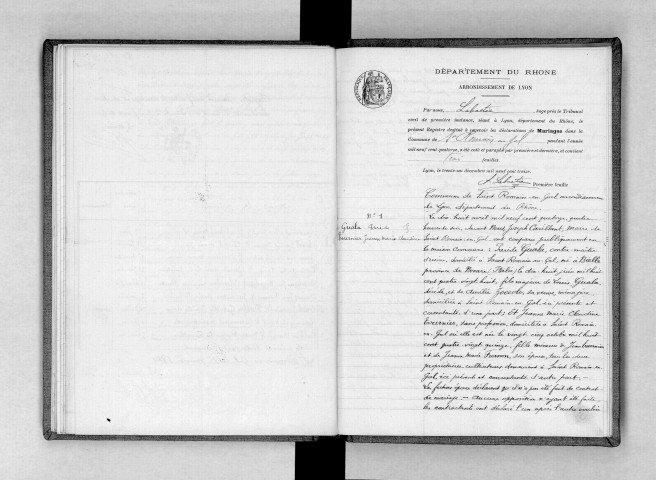 DÉPARTEMENT DU RHONE
ARRONDISSEMENT DE LYON
Par nous, Juge près le Tribunal
civil de première instance, séant à Lyon, département du Rhône, le
présent Registre destiné à recevoir les déclarations de Mariages dans la
Commune de St Romain en Gal pendant l'année
mil neuf cent quatorze, a été coté et paraphé par première et dernière, et contient
feuillet
Lyon, le trente-un décembre mil neuf cent treize.
Première feuille
Commune de Saint Romain en Gal arrondissement
de Lyon département du Rhône.
Le dix huit avril mil neuf cent quatorze, quatre
heures du soir, devant Nous Joseph maire de
Saint Romain en Gal ont comparu publiquement en
la maison Commune: Guala, contre maître
domicilié à Saint Romain en Gal, né à Bielle
province de Novare, Italie, le dix huit juin mil huit
cent quatre vingt huit, fils majeur de Louis Guala
décédé, et de sa veuve, ménagère
domiciliée à Saint Romain en Gal ici présente et
consentante d'une part; Et Jeanne Marie Claudine
Fournier, sans profession domiciliée à Saint Romain
en Gal où elle est née le vingt cinq octobre mil huit
cent quatre vingt quinze, fille mineure de Jean Fournier
et de Jeanne Marie son épouse, tous les deux
propriétaires cultivateurs demeurant à Saint Romain en
Gal, ici présents et consentants d'autre part.
Les futurs époux déclarent qu'il n'a pas été fait de contrat
de mariage. Aucune opposition n'ayant été faite
les contractants ont déclaré l'un après l'autre vouloir
N° 1
Guala
&
Fournier Jeanne Marie Claudine